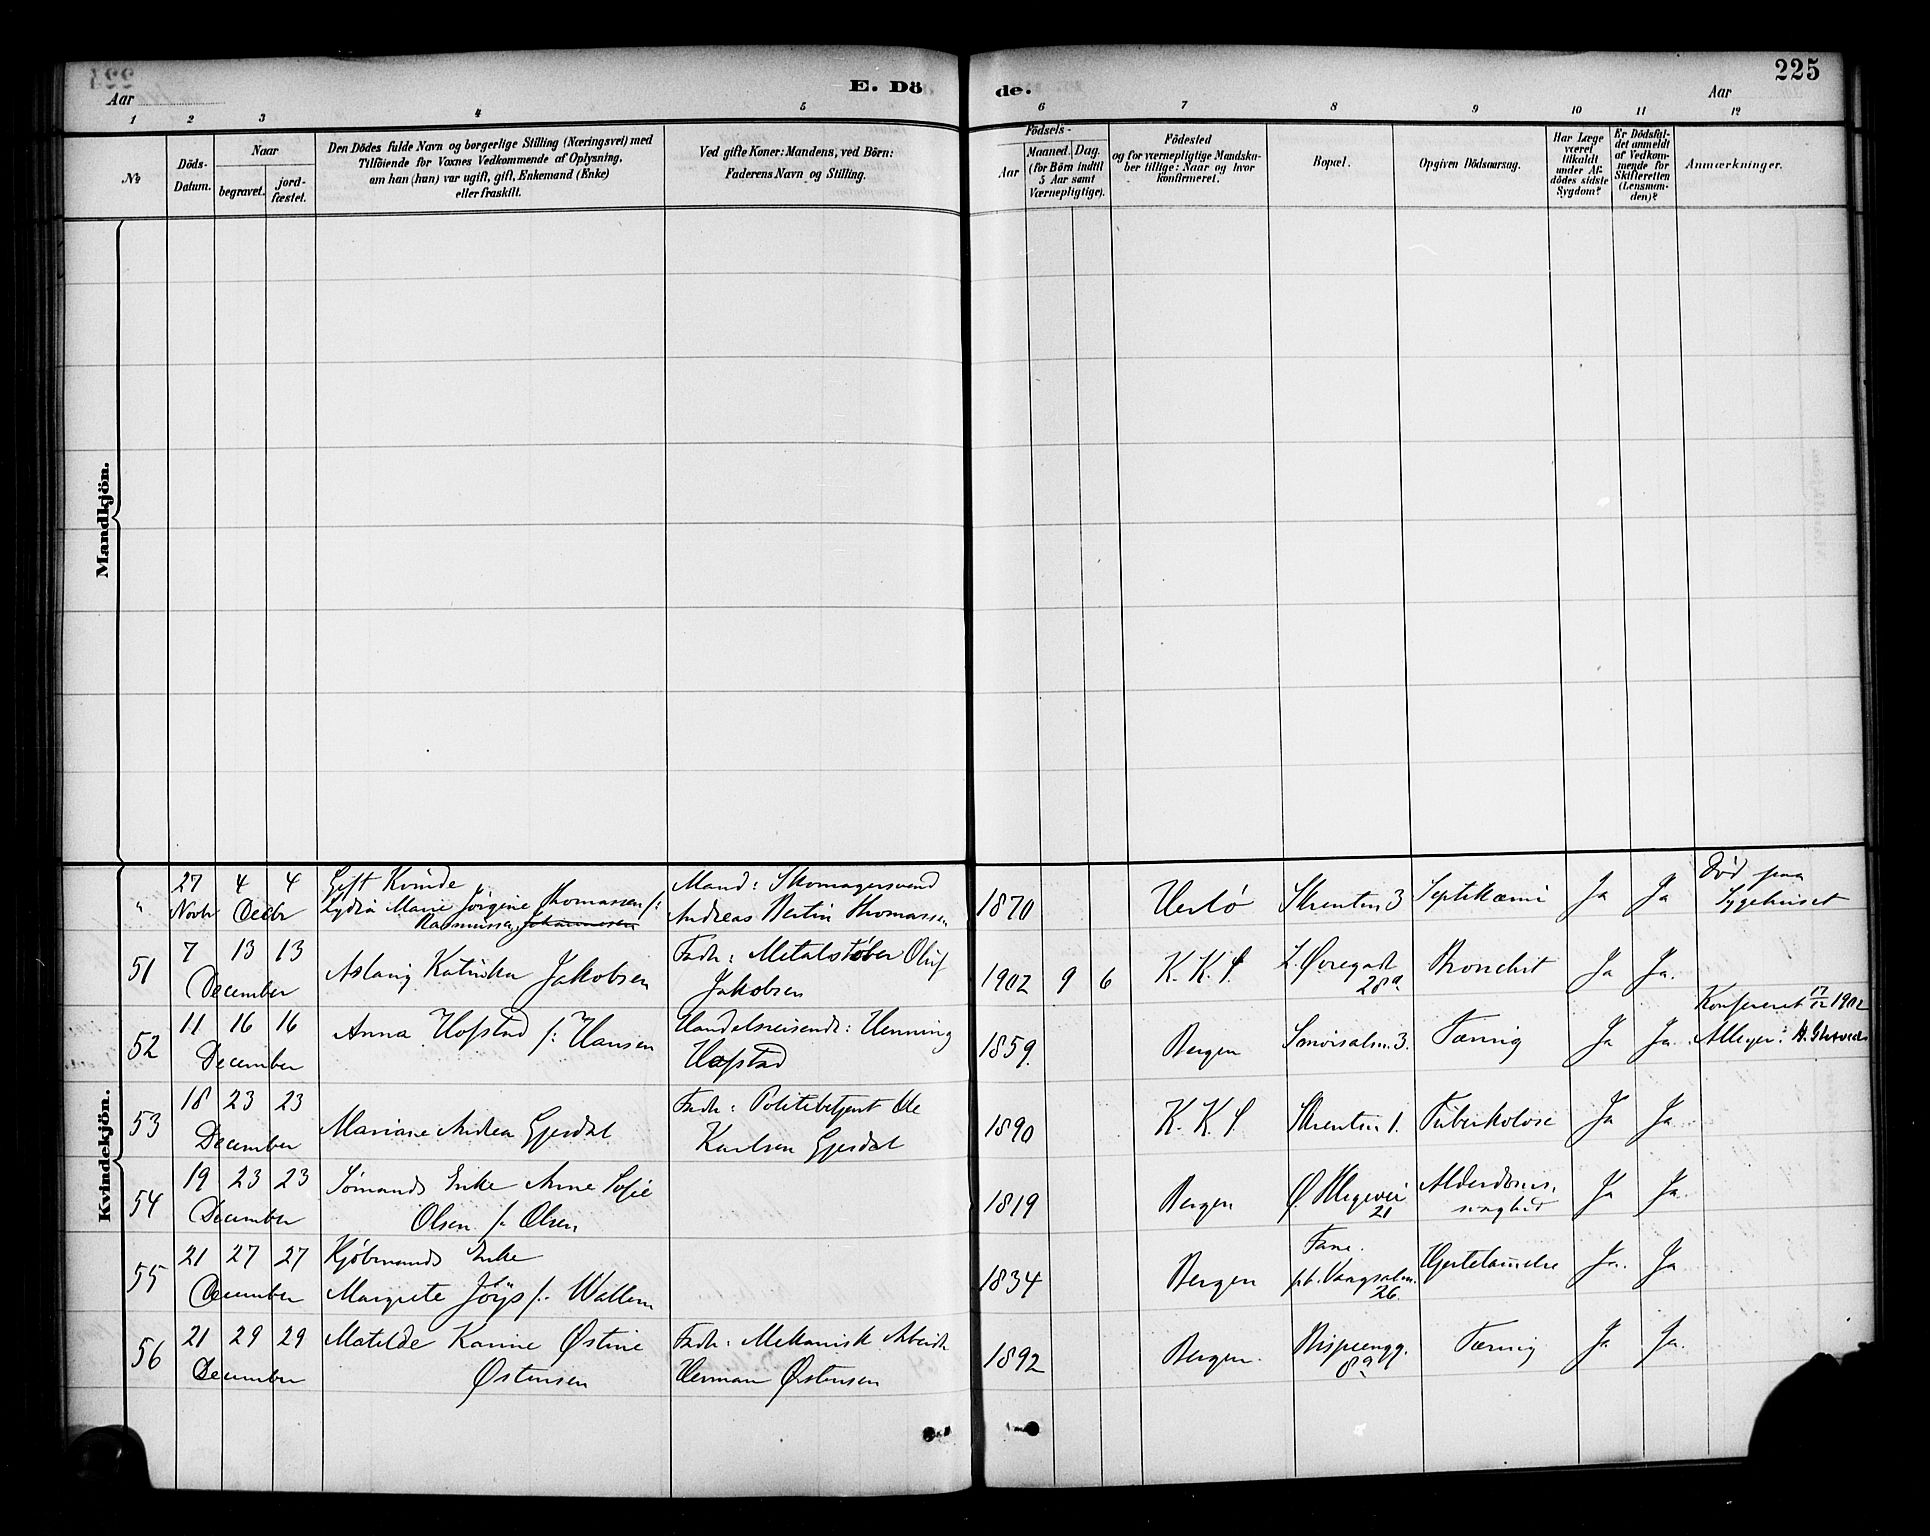 225
Aar
E. Dö
de.
Aar
1 2 3 4 5 6 7 8 9 10 11 12
№
Döds-
Datum.
Naar
begravet.
jord-
fæstet.
Den Dödes fulde Navn og borgerlige Stilling (Næringsvei) med
Tilföiende for Voxnes Vedkommende af Oplysning,
om han (hun) var ugift, gift, Enkemand (Enke)
eller fraskilt.
Ved gifte Koner: Mandens, ved Börn:
Faderens Navn og Stilling.
Födsels-
Aar
Maaned. Dag.
(for Börn indtil
5 Aar samt
Værnepligtige).
Födested
og for værnepligtige Mandska-
ber tillige: Naar og hvor
konfirmeret.
Bopæl.
Opgiven Dödsaarsag.
Har Læge
været
tilkaldt
under Af-
dödes sidste
Sygdom?
Er Dödsfal-
det anmeldt
af Vedkom-
mende for
Skifteretten
(Lensman-
den)?
Anmærkninger.
Mandkjön.
Kvindekjön.
" 27 4 4 Gift Kvinde Mand: Skomagersvend
Novbr Decbr Lydia Marie Jørgine Thomassen f: Andreas Bertin Thomassen 1870 Herlö Skrentin 3 Septikæmi Ja Ja Død paa
Rasmussen Johannesen Sygehuset
51 7 13 13 Fadr: Metalstøber Oluf
December Aslaug Katinka Jakobsen Jakobsen 1902 9 6 K. K. S. L. Øvregade Bronchit Ja Ja.
28a
52 11 16 16 Anna Hofstad f: Hansen Handelsreisende: Henning Konfereret 17/12 1902
December Hofstad 1859. Bergen 3. Tæring Ja Ja.
53 18 23 23 Fadr: Politibetjent Ole
December Mariane Andrea Gjesdal Karlsen Gjesdal 1890 K. K. S Skrentin 1. Tuberkolose Ja Ja
54 19 23 23 Sömands Enke Anne Sofie
December Olsen f. Olsen 1819 Bergen Ø. Blegevei Alderdoms.
21 svaghed Ja Ja.
55 21 27 27 Kjöbmands Enke Fane.
December Margrete f. Wallem 1834 Bergen 26. Hjertelammelse Ja. Ja
56 21 29 29 Matilde Karine Østine Fadr: Mekanisk Arbeidr
December Østensen Herman Østensen 1892 Bergen. Bispeengg. Tæring Ja Ja.
8a